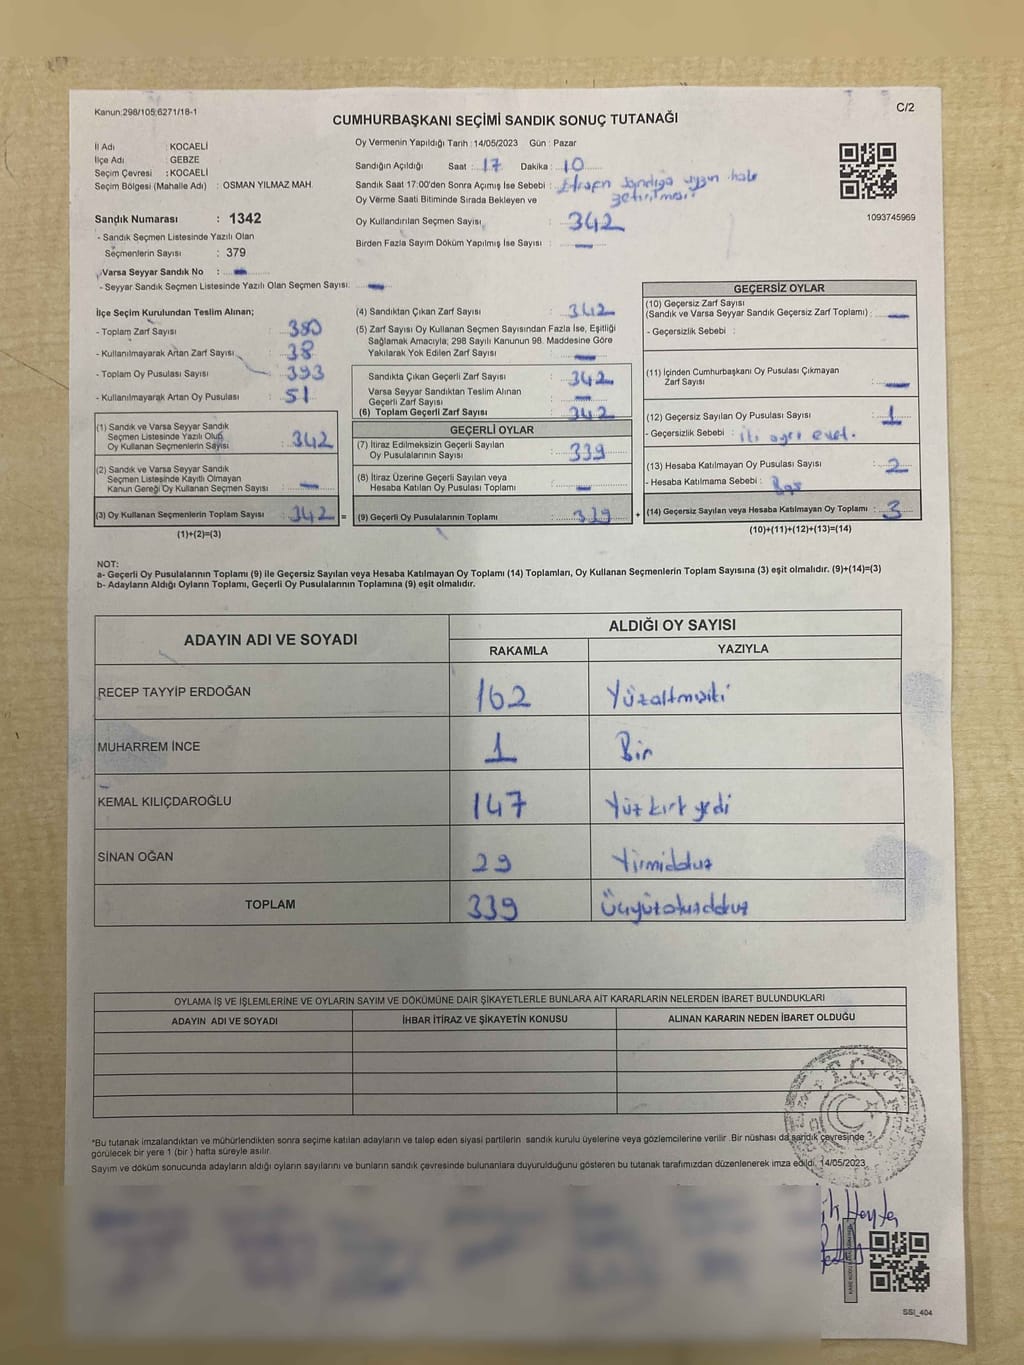 Kanun:298/105;6271/18-1
C/2
CUMHURBAŞKANI SEÇİMİ SANDIK SONUÇ TUTANAĞI
İl Adı : KOCAELİ
İlçe Adı : GEBZE
Seçim Çevresi : KOCAELİ
Seçim Bölgesi (Mahalle Adı) : OSMAN YILMAZ MAH.
Sandık Numarası : 1342
- Sandık Seçmen Listesinde Yazılı Olan
Seçmenlerin Sayısı : 379
Varsa Seyyar Sandık No : -
- Seyyar Sandık Seçmen Listesinde Yazılı Olan Seçmen Sayısı: -
Oy Vermenin Yapıldığı Tarih :14/05/2023 Gün : Pazar
Sandığın Açıldığı Saat : 17 Dakika : 10
Sandık Saat 17:00'den Sonra Açımış İse Sebebi : sandığa uygun hale
Oy Verme Saati Bitiminde Sırada Bekleyen ve getirilmesi
Oy Kullandırılan Seçmen Sayısı : 342
Birden Fazla Sayım Döküm Yapılmış İse Sayısı : -
1093745969
İlçe Seçim Kurulundan Teslim Alınan;
- Toplam Zarf Sayısı : 380
- Kullanılmayarak Artan Zarf Sayısı : 38
- Toplam Oy Pusulası Sayısı : 393
- Kullanılmayarak Artan Oy Pusulası : 51
(1) Sandık ve Varsa Seyyar Sandık
Seçmen Listesinde Yazılı Olup
Oy Kullanan Seçmenlerin Sayısı : 342
(2) Sandık ve Varsa Seyyar Sandık
Seçmen Listesinde Kayıtlı Olmayan
Kanun Gereği Oy Kullanan Seçmen Sayısı : -
(3) Oy Kullanan Seçmenlerin Toplam Sayısı : 342 =
(1)+(2)=(3)
(4) Sandıktan Çıkan Zarf Sayısı : 342
(5) Zarf Sayısı Oy Kullanan Seçmen Sayısından Fazla İse, Eşitliği
Sağlamak Amacıyla; 298 Sayılı Kanunun 98. Maddesine Göre
Yakılarak Yok Edilen Zarf Sayısı : -
Sandıkta Çıkan Geçerli Zarf Sayısı : 342
Varsa Seyyar Sandıktan Teslim Alınan
Geçerli Zarf Sayısı : -
(6) Toplam Geçerli Zarf Sayısı : 342
GEÇERLİ OYLAR
(7) İtiraz Edilmeksizin Geçerli Sayılan
Oy Pusulalarının Sayısı : 339
(8) İtiraz Üzerine Geçerli Sayılan veya
Hesaba Katılan Oy Pusulası Toplamı : -
(9) Geçerli Oy Pusulalarının Toplamı : 339 +
GEÇERSİZ OYLAR
(10) Geçersiz Zarf Sayısı
(Sandık ve Varsa Seyyar Sandık Geçersiz Zarf Toplamı) : -
- Geçersizlik Sebebi :
(11) İçinden Cumhurbaşkanı Oy Pusulası Çıkmayan
Zarf Sayısı : -
(12) Geçersiz Sayılan Oy Pusulası Sayısı : 1
- Geçersizlik Sebebi : iki ayrı evet.
(13) Hesaba Katılmayan Oy Pusulası Sayısı : 2
- Hesaba Katılmama Sebebi : Boş
(14) Geçersiz Sayılan veya Hesaba Katılmayan Oy Toplamı : 3
(10)+(11)+(12)+(13)=(14)
NOT:
a- Geçerli Oy Pusulalarının Toplamı (9) ile Geçersiz Sayılan veya Hesaba Katılmayan Oy Toplamı (14) Toplamları, Oy Kullanan Seçmenlerin Toplam Sayısına (3) eşit olmalıdır. (9)+(14)=(3)
b- Adayların Aldığı Oyların Toplamı, Geçerli Oy Pusulalarının Toplamına (9) eşit olmalıdır.
ADAYIN ADI VE SOYADI
ALDIĞI OY SAYISI
RAKAMLA YAZIYLA
RECEP TAYYİP ERDOĞAN 162 Yüzaltmışiki
MUHARREM İNCE 1 Bir
KEMAL KILIÇDAROĞLU 147 Yüz kırk yedi
SİNAN OĞAN 29 Yirmidokuz
TOPLAM 339 Üçyüzotuzdokuz
OYLAMA İŞ VE İŞLEMLERİNE VE OYLARIN SAYIM VE DÖKÜMÜNE DAİR ŞİKAYETLERLE BUNLARA AİT KARARLARIN NELERDEN İBARET BULUNDUKLARI
ADAYIN ADI VE SOYADI İHBAR İTİRAZ VE ŞİKAYETİN KONUSU ALINAN KARARIN NEDEN İBARET OLDUĞU
T.C.
*Bu tutanak imzalandıktan ve mühürlendikten sonra seçime katılan adayların ve talep eden siyasi partilerin sandık kurulu üyelerine veya gözlemcilerine verilir .Bir nüshası da sandık çevresinde
görülecek bir yere 1 (bir ) hafta süreyle asılır.
Sayım ve döküm sonucunda adayların aldığı oyların sayılarını ve bunların sandık çevresinde bulunanlara duyurulduğunu gösteren bu tutanak tarafımızdan düzenlenerek imza edildi. 14/05/2023
SSI_404